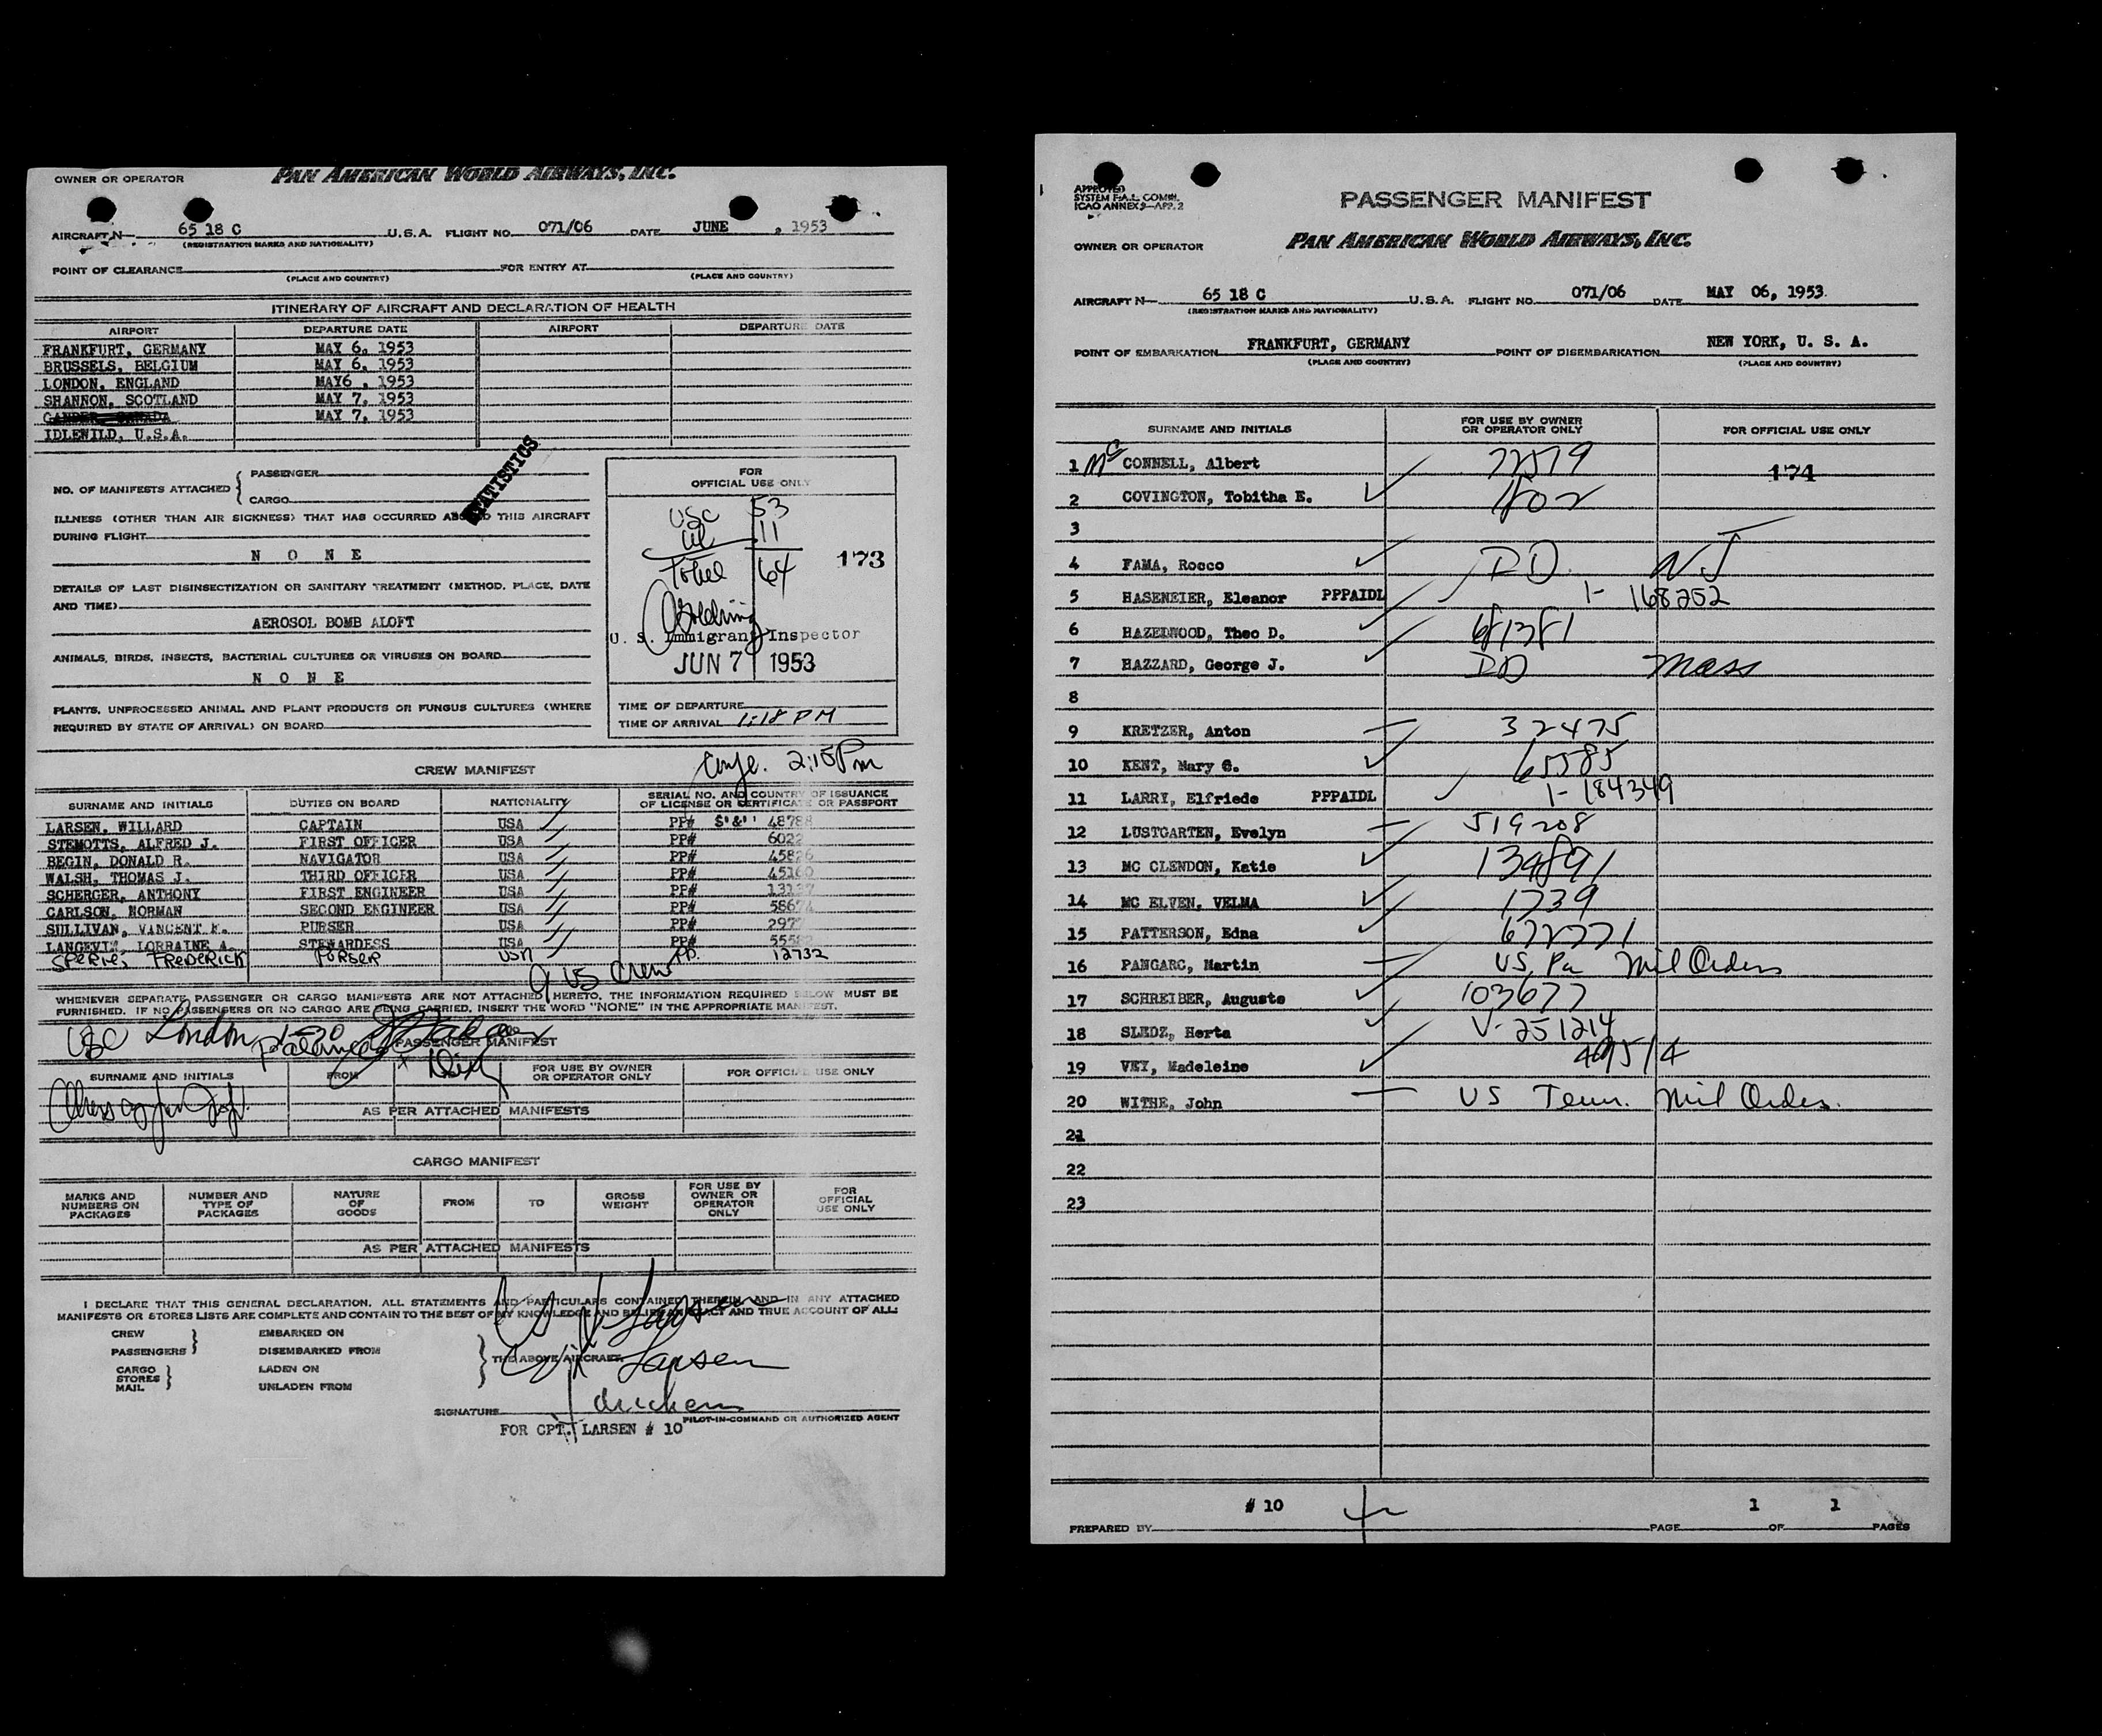 PAN AMERICAN WORLD AIRWAYS, INC.
OWNER OR OPERATOR
AIRCRAFT N 65 18 C U.S.A. FLIGHT NO. 071/06 DATE JUNE , 1953
(REGISTRATION MARKS AND NATIONALITY)
POINT OF CLEARANCE FOR ENTRY AT
(PLACE AND COUNTRY) (PLACE AND COUNTRY)
ITINERARY OF AIRCRAFT AND DECLARATION OF HEALTH
AIRPORT DEPARTURE DATE AIRPORT DEPARTURE DATE
FRANKFURT, GERMANY MAY 6. 1953
BRUSSELS, BELGIUM MAY 6. 1953
LONDON, ENGLAND MAY6 . 1953
SHANNON, SCOTLAND MAY 7. 1953
GANDER CANADA MAY 7. 1953
IDLEWILD, U.S.A.
STATISTICS
NO. OF MANIFESTS ATTACHED
PASSENGER
CARGO
ILLNESS (OTHER THAN AIR SICKNESS) THAT HAS OCCURRED ABOARD THIS AIRCRAFT
DURING FLIGHT
N O N E
DETAILS OF LAST DISINSECTIZATION OR SANITARY TREATMENT (METHOD, PLACE, DATE
AND TIME)
AEROSOL BOMB ALOFT
ANIMALS, BIRDS, INSECTS, BACTERIAL CULTURES OR VIRUSES ON BOARD
N O N E
PLANTS, UNPROCESSED ANIMAL AND PLANT PRODUCTS OR FUNGUS CULTURES (WHERE
REQUIRED BY STATE OF ARRIVAL) ON BOARD
FOR
OFFICIAL USE ONLY
USC 53
11
Total 64
173
U. S. Immigrant Inspector
JUN 7 1953
TIME OF DEPARTURE
TIME OF ARRIVAL 1:18 PM
2:15 Pm
CREW MANIFEST
SURNAME AND INITIALS DUTIES ON BOARD NATIONALITY SERIAL NO. AND COUNTRY OF ISSUANCE
OF LICENSE OR CERTIFICATE OR PASSPORT
LARSEN, WILLARD CAPTAIN USA PP# 48788
STEMOTTS, ALFRED J. FIRST OFFICER USA PP# 6022
BEGIN, DONALD R. NAVIGATOR USA PP# 45826
WALSH, THOMAS J. THIRD OFFICER USA PP# 45160
SCHERGER, ANTHONY FIRST ENGINEER USA PP# 13137
CARLSON, NORMAN SECOND ENGINEER USA PP# 58674
SULLIVAN, VINCENT F. PURSER USA PP# 2977
LANGEVIN, LORRAINE A. STEWARDESS USA PP# 55582
FREDERICK PURSER USA PP. 12732
9 US Crew
WHENEVER SEPARATE PASSENGER OR CARGO MANIFESTS ARE NOT ATTACHED HERETO, THE INFORMATION REQUIRED BELOW MUST BE
FURNISHED. IF NO PASSENGERS OR NO CARGO ARE BEING CARRIED, INSERT THE WORD "NONE" IN THE APPROPRIATE MANIFEST.
London
PASSENGER MANIFEST
SURNAME AND INITIALS FROM FOR USE BY OWNER
OR OPERATOR ONLY FOR OFFICIAL USE ONLY
AS PER ATTACHED MANIFESTS
CARGO MANIFEST
MARKS AND
NUMBERS ON
PACKAGES
NUMBER AND
TYPE OF
PACKAGES
NATURE
OF
GOODS
FROM
TO
GROSS
WEIGHT
FOR USE BY
OWNER OR
OPERATOR
ONLY
FOR
OFFICIAL
USE ONLY
AS PER ATTACHED MANIFESTS
I DECLARE THAT THIS GENERAL DECLARATION, ALL STATEMENTS AND PARTICULARS CONTAINED THEREIN, AND IN ANY ATTACHED
MANIFESTS OR STORES LISTS ARE COMPLETE AND CONTAIN TO THE BEST OF MY KNOWLEDGE AND BELIEF AN EXACT AND TRUE ACCOUNT OF ALL:
CREW EMBARKED ON
PASSENGERS DISEMBARKED FROM
CARGO LADEN ON
STORES
MAIL UNLADEN FROM
THE ABOVE AIRCRAFT.
Larsen
Larsen
SIGNATURE
PILOT-IN-COMMAND OR AUTHORIZED AGENT
FOR CPT. LARSEN # 10
APPROVED
SYSTEM F.A.L. COMM.
ICAO ANNEX 9—APP. 2
PASSENGER MANIFEST
OWNER OR OPERATOR PAN AMERICAN WORLD AIRWAYS, INC.
AIRCRAFT N— 65 18 C U.S.A. FLIGHT NO. 071/06 DATE MAY 06, 1953.
(REGISTRATION MARKS AND NATIONALITY)
POINT OF EMBARKATION FRANKFURT, GERMANY POINT OF DISEMBARKATION NEW YORK, U. S. A.
(PLACE AND COUNTRY) (PLACE AND COUNTRY)
SURNAME AND INITIALS FOR USE BY OWNER
OR OPERATOR ONLY FOR OFFICIAL USE ONLY
1 Mc CONNELL, Albert 72579 174
2 COVINGTON, Tobitha E. 1802
3
4 FAMA, Rocco DD NJ
5 HASENEIER, Eleanor PPPAIDL 1- 168252
6 HAZEDWOOD, Theo D. 681381
7 HAZZARD, George J. DD Mass
8
9 KRETZER, Anton 32475
10 KENT, Mary G. 65585
11 LARRY, Elfriede PPPAIDL 1-184349
12 LUSTGARTEN, Evelyn 519208
13 MC CLENDON, Katie 134891
14 MC ELVEN, VELMA 1739
15 PATTERSON, Edna 672771
16 PANGARC, Martin US, Pa Mil Orders
17 SCHREIBER, Auguste 103677
18 SLEDZ, Herta V-251214
19 VEY, Madeleine 49514
20 WITHE, John US Tenn. Mil Orders.
21
22
23
PREPARED BY # 10 PAGE 1 OF 1 PAGES